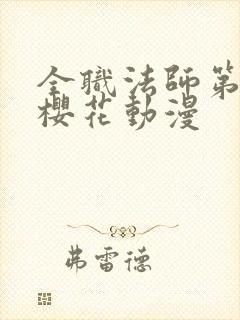 全職法師第
櫻花動漫
弗雷德